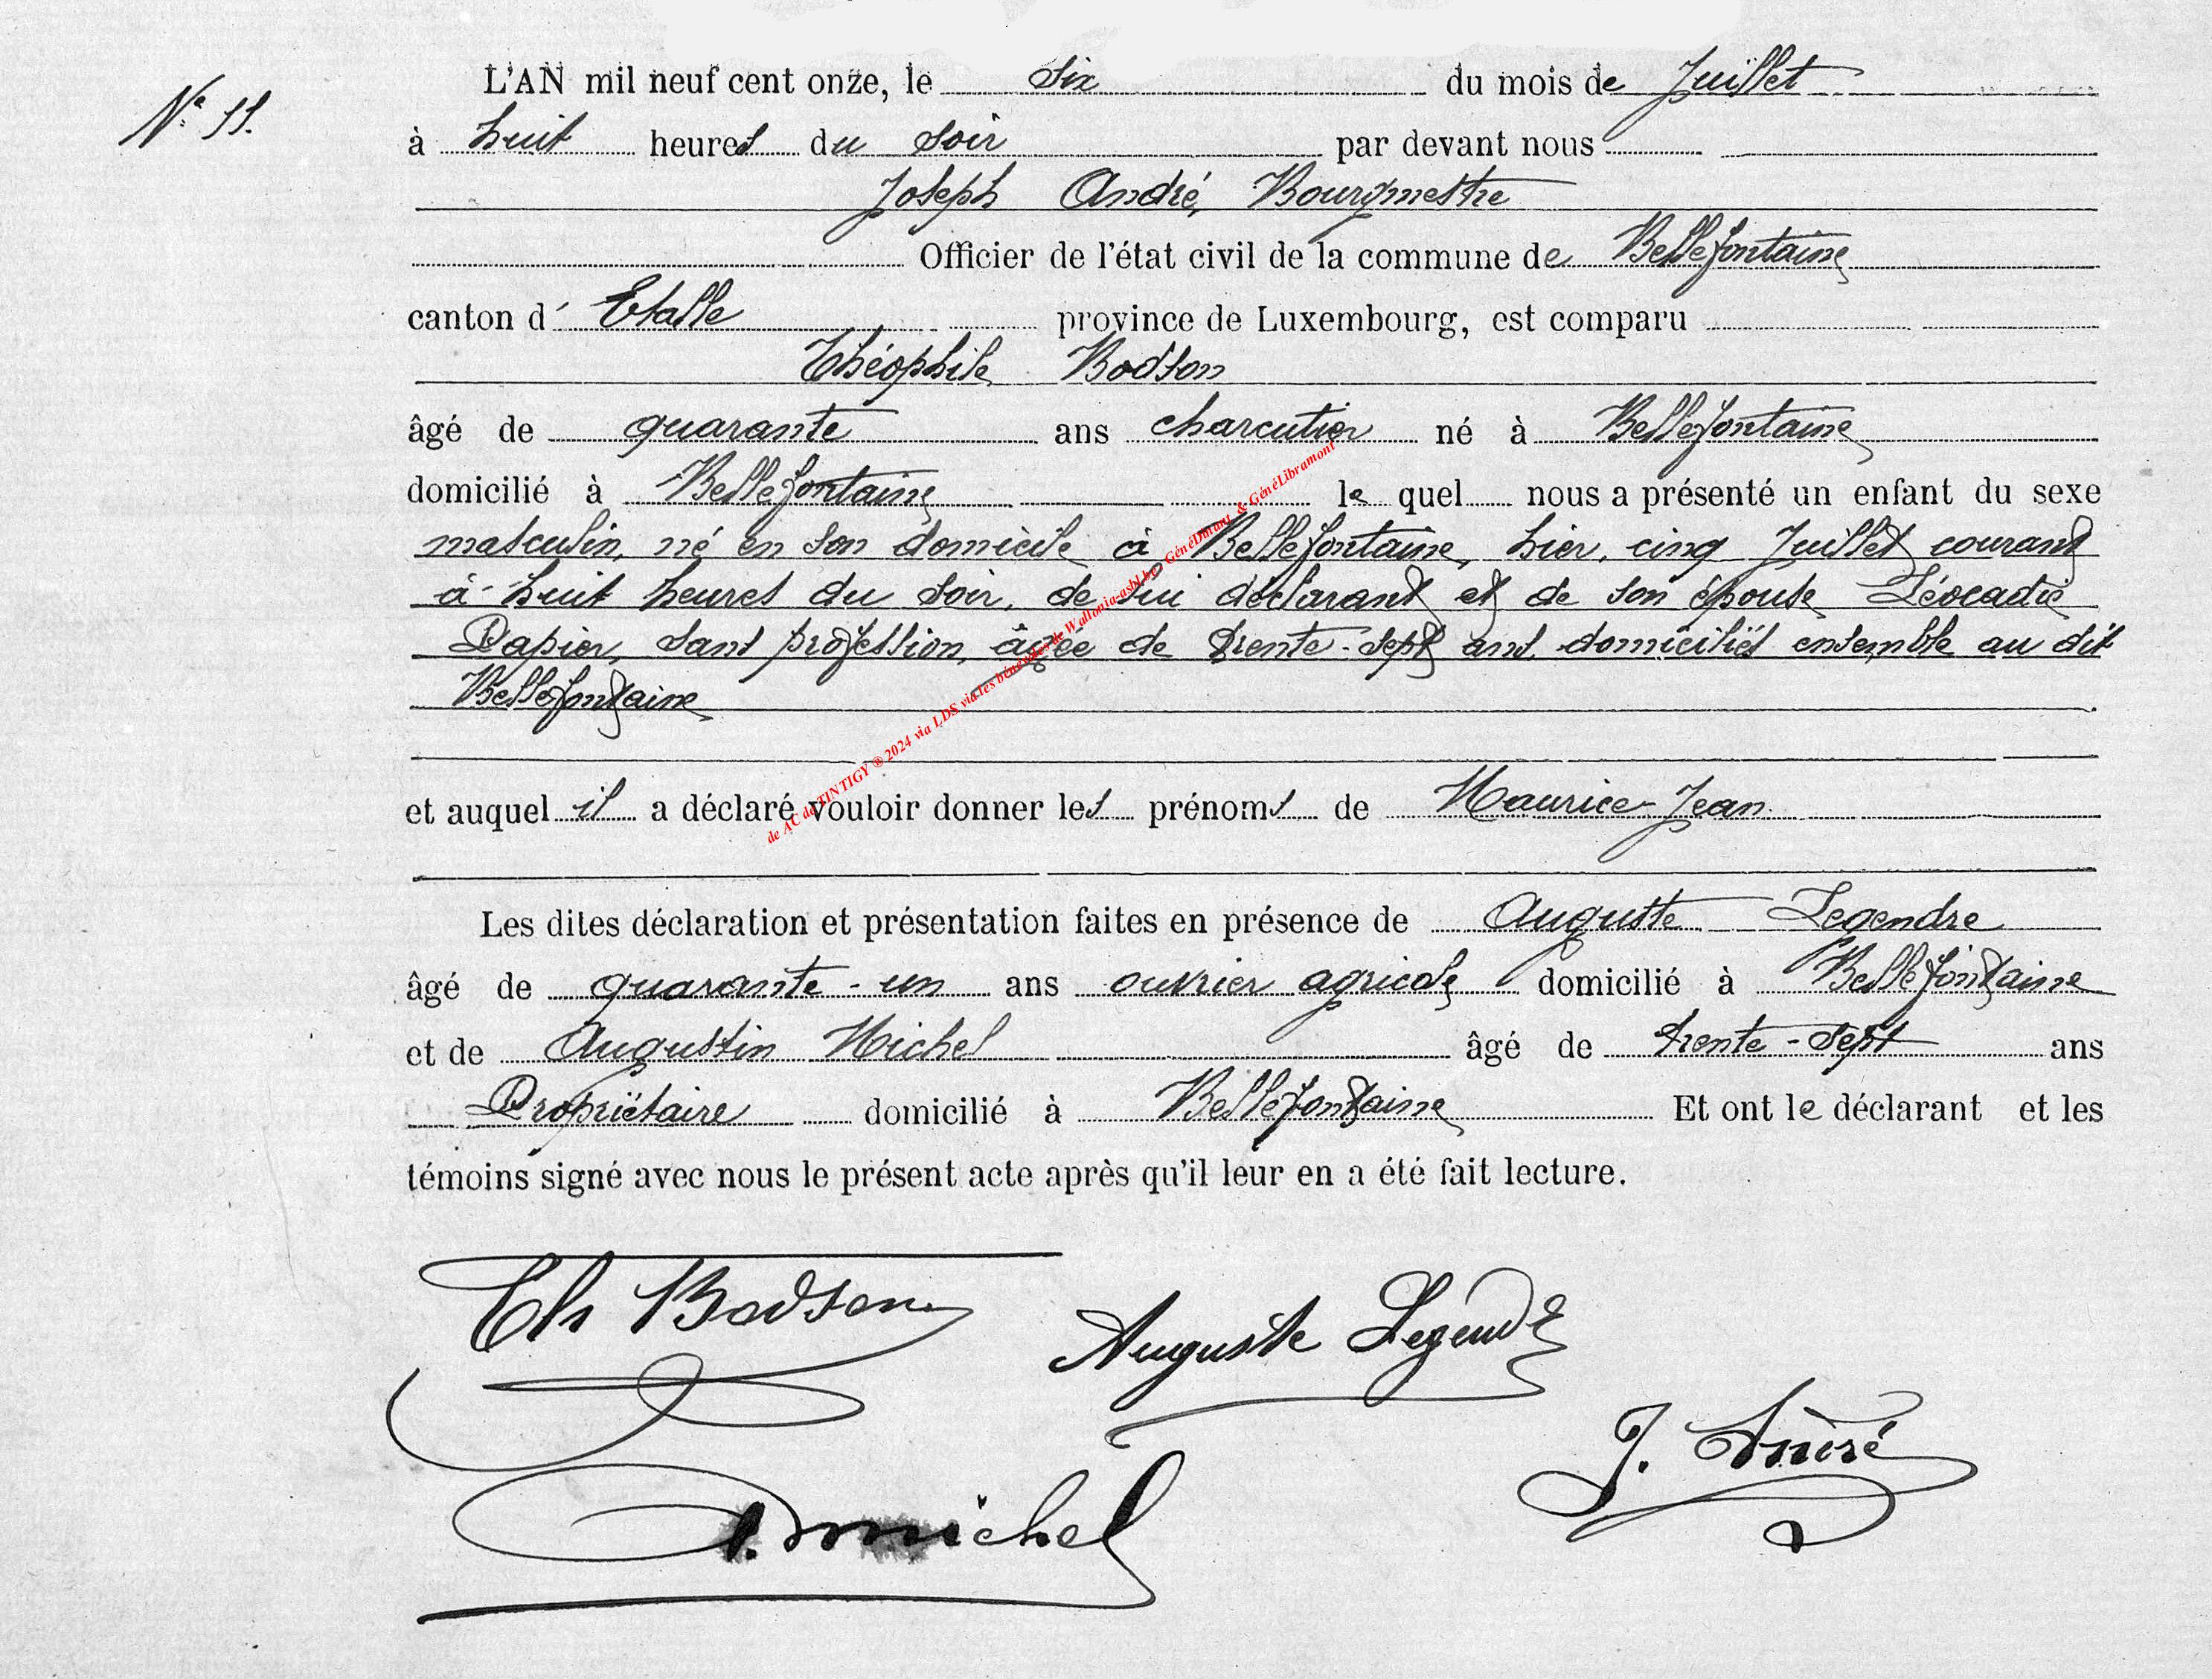 L'AN mil neuf cent onze, le six du mois de Juillet
N° 11.
à huit heures du soir par devant nous
Joseph André, Bourgmestre
Officier de l'état civil de la commune de Bellefontaine
canton d' Etalle province de Luxembourg, est comparu
Théophile Bodson
âgé de quarante ans charcutier né à Bellefontaine
domicilié à Bellefontaine le quel nous a présenté un enfant du sexe
masculin, né en son domicile à Bellefontaine, hier, cinq Juillet courant
à huit heures du soir, de lui déclarant et de son épouse Léocadie
Papier, sans profession, âgée de trente-sept ans, domiciliés ensemble au dit
Bellefontaine
et auquel il a déclaré vouloir donner les prénoms de Maurice-Jean.
Les dites déclaration et présentation faites en présence de Auguste Legendre
âgé de quarante-un ans ouvrier agricole domicilié à Bellefontaine
et de Augustin Michel âgé de trente-sept ans
Propriétaire domicilié à Bellefontaine Et ont le déclarant et les
témoins signé avec nous le présent acte après qu'il leur en a été fait lecture.
Th Bodson
Auguste Legendre
J. André
A. michel
de AC de TINTIGY ® 2024 via LDS via les bénévoles de Wallonia-asbl.be, GénéDinant & GénéLibramont